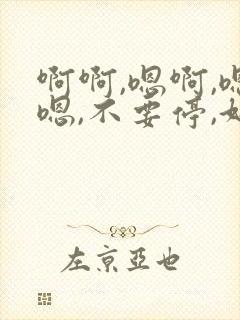 啊啊,嗯啊,嗯
嗯,不要停,
左京亞也